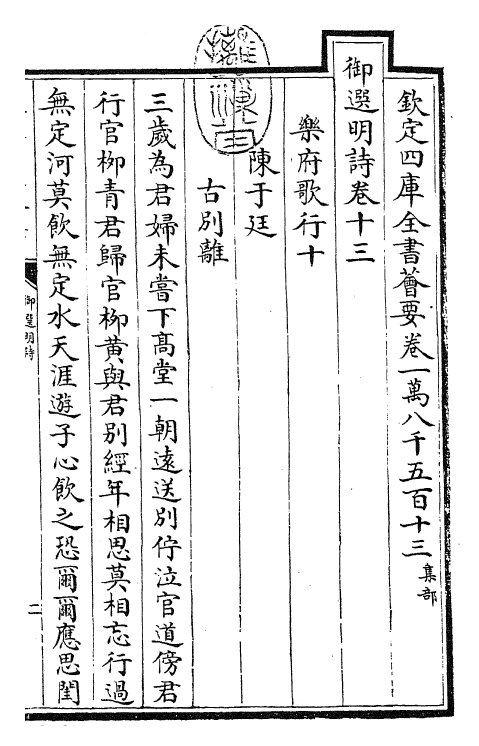 欽定四庫全書薈要卷一萬八千五百十三 集部
御選明詩卷十三
樂府歌行十
陳于廷
古別離
三歲為君婦未嘗下髙堂一朝逺送別佇泣官道傍君
行官栁青君歸官栁黄與君別經年相思莫相忘行過
無定河莫飲無定水天涯遊子心飲之恐爾爾應思閨
御選明詩